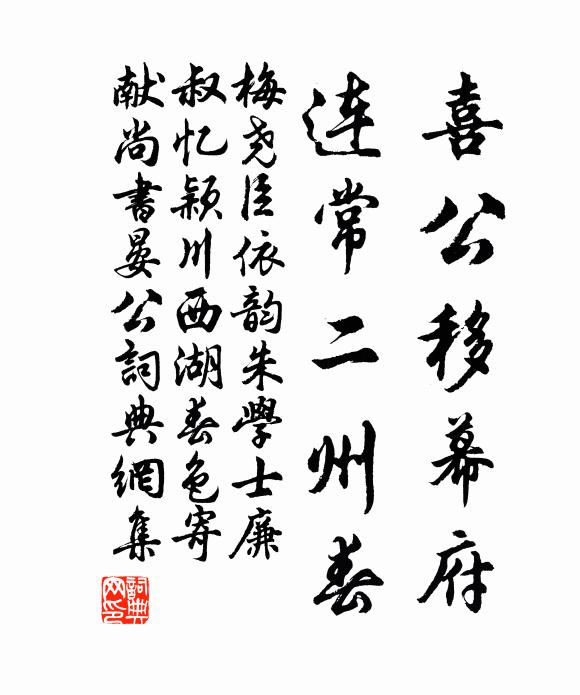 喜公移幕府
连常二州春
梅尧臣依韵朱學士廉
叔忆颍川西湖春色寄
献尚書晏公詞典網集
詞典网印